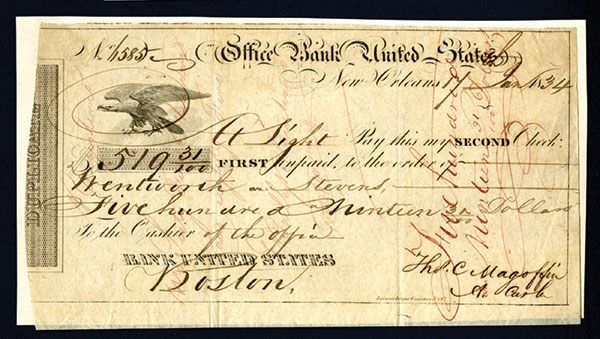 No. 1585 Office Bank United States
New Orleans 17 Jan 1834
DUPLICATE
At Sight Pay this my SECOND Check
$519 31/100 FIRST unpaid, to the order of
Wentworth an Stevens,
Five hundred Ninteen 31/100 Dollars
To the Cashier of the office
BANK UNITED STATES
Boston.
Tho. C. Magoffin
A. Cash
Five hundred
Ninteen 31